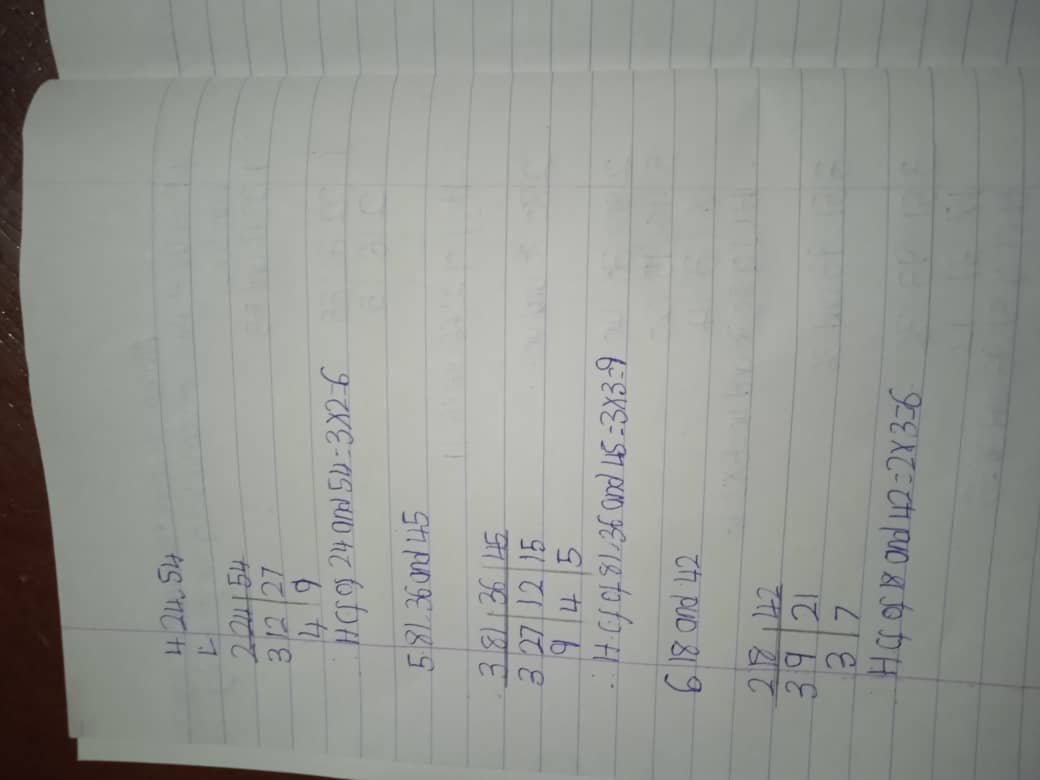 4 24, 54
2 24 54
3 12 27
4 9
H Cf of 24 and 54 = 3x2=6
5 81, 36 and 45
3 81 36 45
3 27 12 15
9 4 5
∴ H.Cf of 81, 36 and 45 = 3x3=9
6 18 and 42
2 18 42
3 9 21
3 7
H Cf of 18 and 42 = 2x3=6